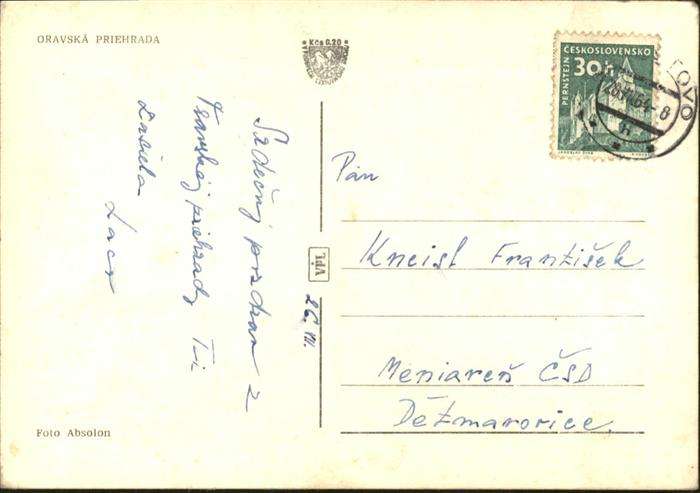 ORAVSKÁ PRIEHRADA
Kčs 0.20
ČESKOSLOVENSKO
30 h
PERNŠTEJN
TOVO
8
h
Srdečný pozdrav z
Oravskej priehrady Ti
Laco
26. VII.
VPL
Pán
Kneisl František
Meniareň ČSD
Dětmarovice
Foto Absolon